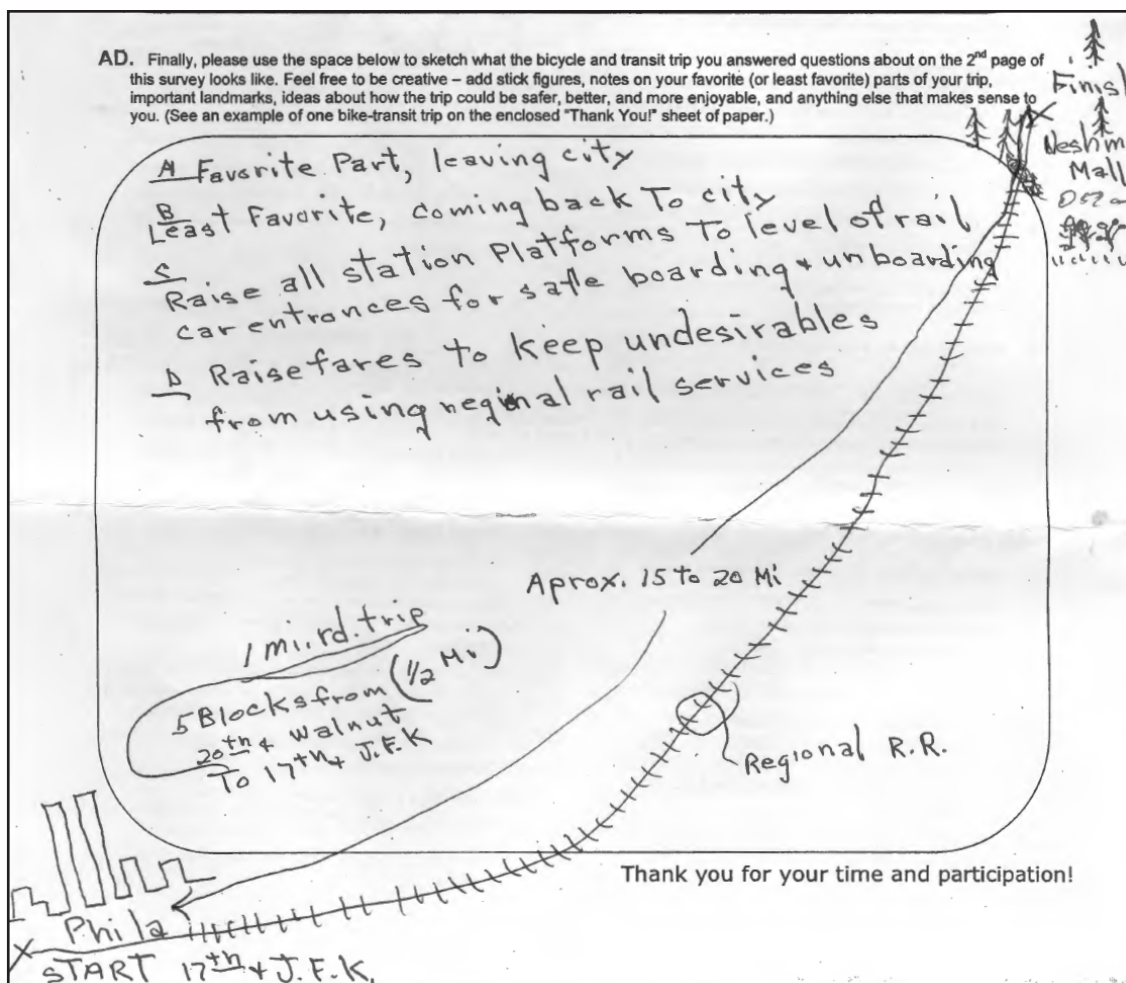 AD. Finally, please use the space below to sketch what the bicycle and transit trip you answered questions about on the 2nd page of
this survey looks like. Feel free to be creative – add stick figures, notes on your favorite (or least favorite) parts of your trip,
important landmarks, ideas about how the trip could be safer, better, and more enjoyable, and anything else that makes sense to
you. (See an example of one bike-transit trip on the enclosed "Thank You!" sheet of paper.)
Finis
Neshm
Mall
A Favorite Part, leaving city
B
Least Favorite, coming back To city
C
Raise all station Platforms To level of rail
car entrances for safe boarding + unboarding
D Raise fares to keep undesirables
from using regional rail services
Aprox. 15 to 20 Mi
1 mi. rd. trip
5 Blocks from (1/2 Mi)
20th + Walnut
To 17th + J.F.K
Regional R.R.
Thank you for your time and participation!
Phila
START 17th + J.F.K.